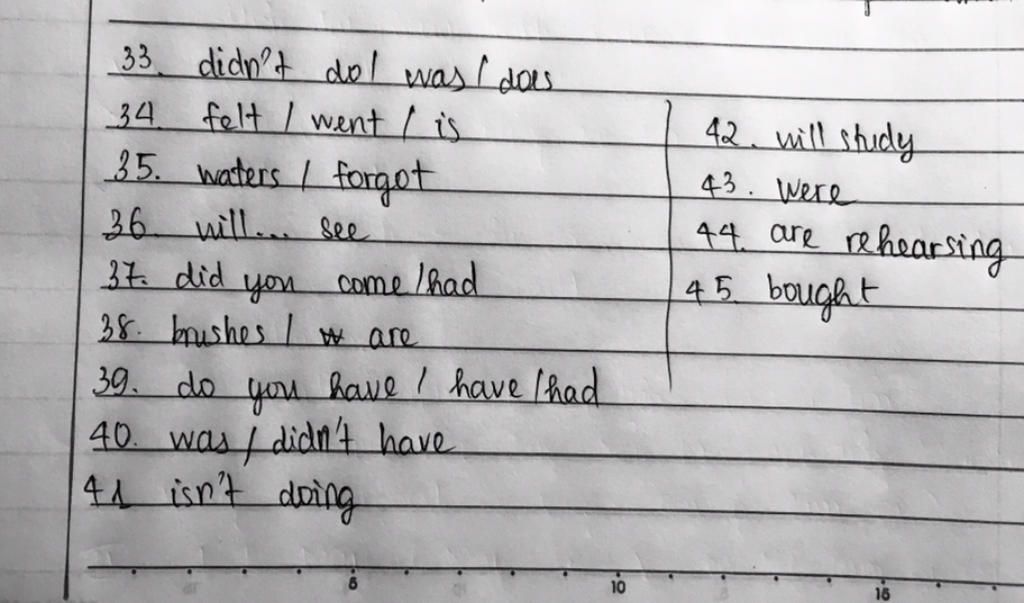 33. didn't do / was / does
34. felt / went / is
35. waters / forgot
36. will... see
37. did you come / had
38. brushes / are
39. do you have / have / had
40. was / didn't have
41 isn't doing
42. will study
43. were
44. are rehearsing
45. bought
10